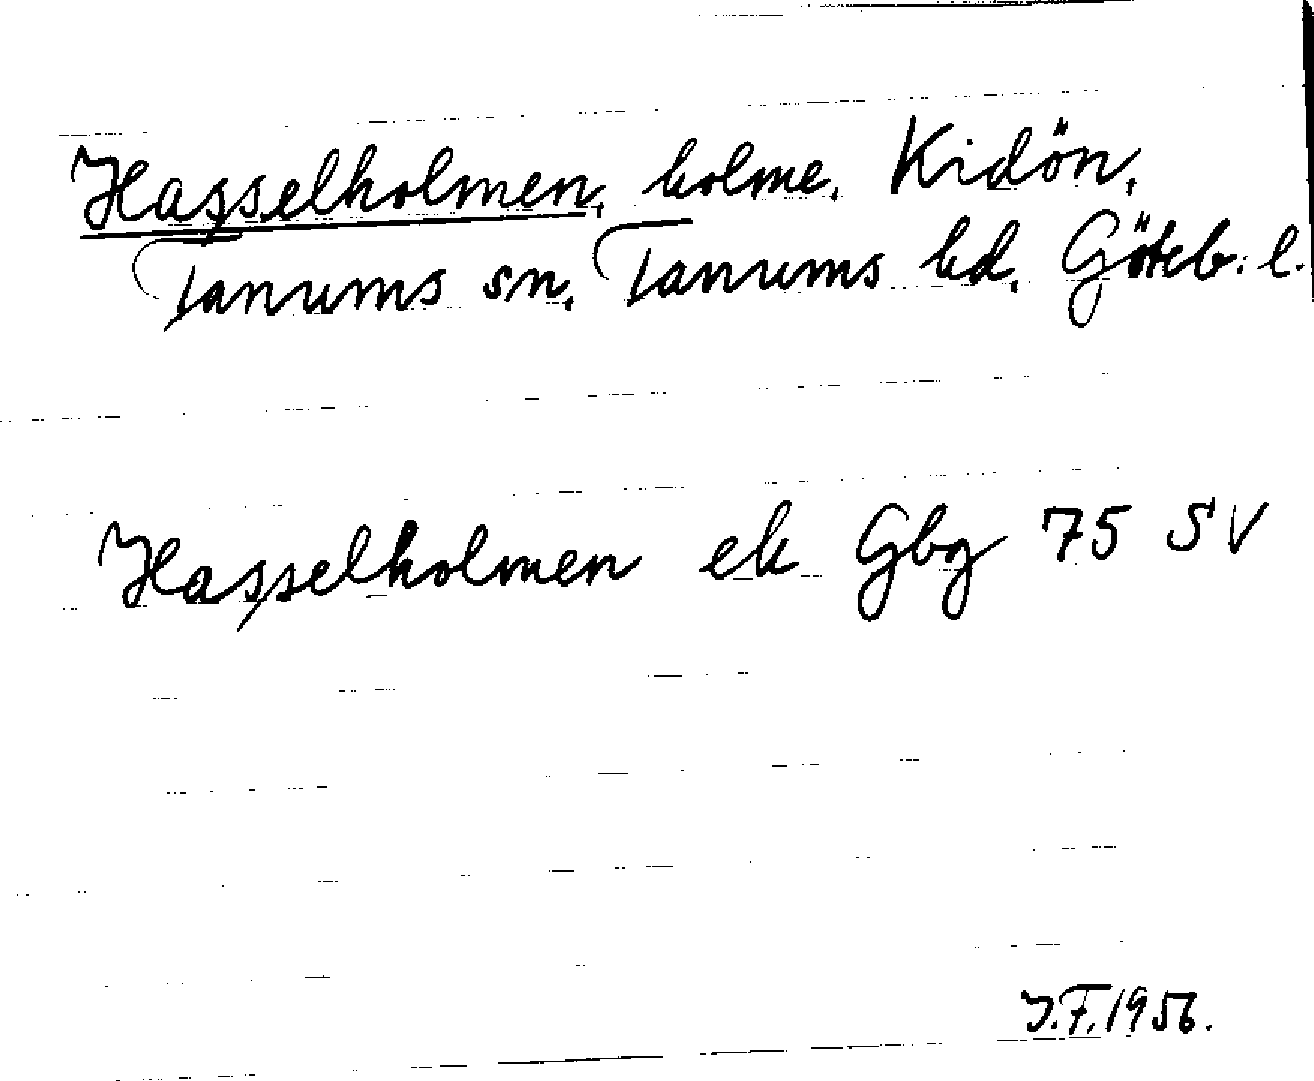 Hasselholmen, holme, Kidön,
Tanums sn, Tanums hd, Göteb. l.
Hasselholmen ek Gbg 75 SV
J.F. 1956.